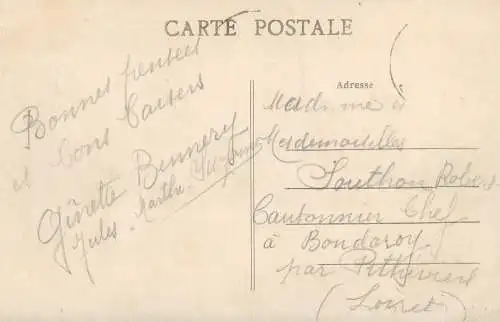 CARTE POSTALE
Bonnes pensées
et bons baisers
Ginette Bennery
Jules - Marthe -
Adresse
Madame et
Mesdemoiselles
Southon
Cantonnier Chef
à Bondaroy
par Pithiviers
(Loiret)